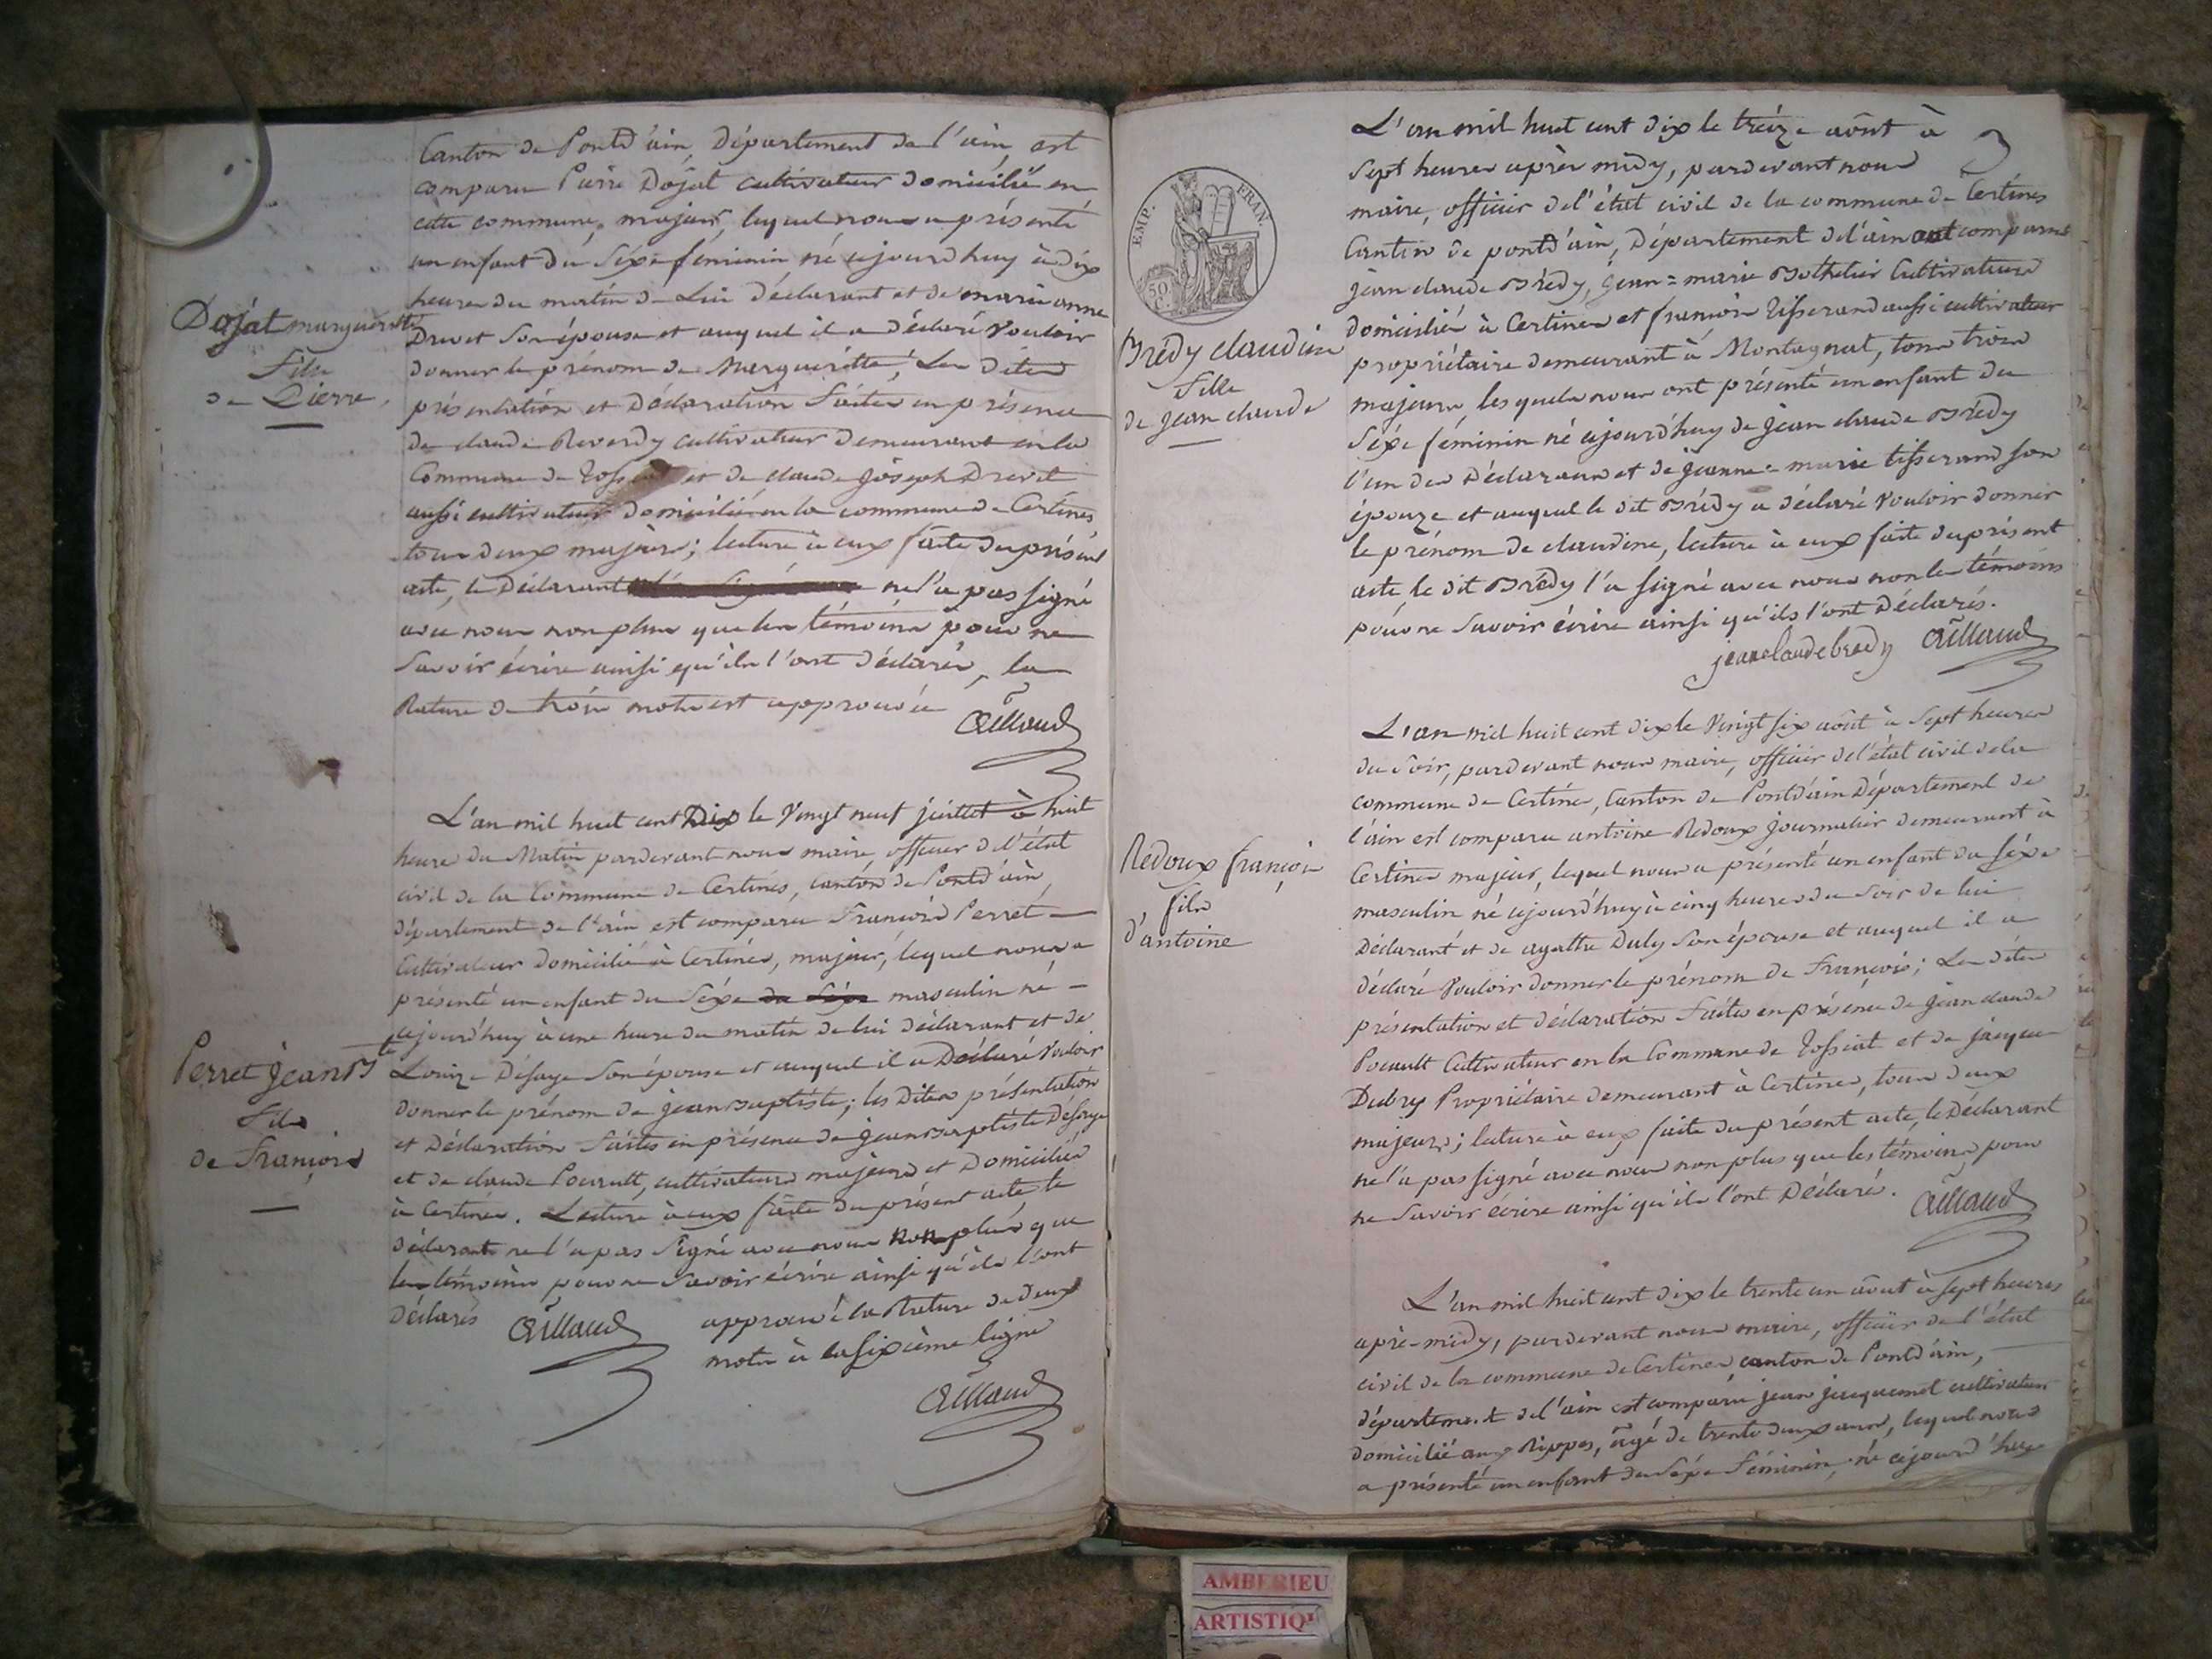 Canton de Pontd'ain, Département de l'ain est
comparu Pierre Dojat cultivateur domicilié en
cette commune, majeur, lequel nous a présenté
un enfant du Séxe féminin né cejourd'huy à dix
heures du matin de Lui déclarant et de marie anne
Drevet Son épouse et auquel il a déclaré Vouloir
donner le prénom de Margueritte; Les dites
présentation et Déclaration faites en présence
de claude Reverdy cultivateur demeurant en la
Commune de Tossiat et de claude joseph Drevet
aussi cultivateur domicilié en la commune de Certines
tous deux majeurs; lecture à eux faite du présent
acte, le Déclarant ne l'a pas signé
avec nous non plus que les témoins pour ne
Savoir écrire ainsi qu'ils l'ont déclarés, la
Rature de trois mots est approuvée
Dojat margueritte
Fille
de Pierre
L'an mil huit cent Dix le Vingt neuf juillet à huit
heures du Matin pardevant nous maire, officier de l'état
civil de la Commune de Certines, canton de Pontd'ain,
département de l'ain est comparu François Perret
Cultivateur domicilié à Certines, majeur, lequel nous a
présenté un enfant du Séxe du Séxe masculin né
cejourd'huy à une heure du matin de lui déclarant et de
Louize Désaye Son épouse et auquel il a Déclaré Vouloir
donner le prénom de jean Baptiste; les Dites présentation
et Déclaration faites en présence de jean Baptiste Désaye
et de claude Pocault, cultivateurs majeurs et Domiciliés
à Certines. Lecture à eux faite du présent acte, le
déclarant ne l'a pas Signé avec nous non plus que
les témoins pour ne Savoir écrire ainsi qu'ils l'ont
Déclarés
approuvé la Rature de deux
mots à la sixième ligne
Perret jean Bte
Fils
de François
3
EMP. FRAN.
50
C.
L'an mil huit cent dix le treize août à
Sept heures après midy, pardevant nous
maire, officier de l'état civil de la commune de Certines
Canton de pontd'ain, Département de l'ain ont comparus
jean claude Brédy, jean=marie Bothelier Cultivateurs
domiciliés à Certines et françois Tisserand aussi cultivateur
propriétaire demeurant à Montagnat, tous trois
majeurs, lesquels nous ont présenté un enfant du
Séxe féminin né cejourd'huy de jean claude Brédy
l'un des Déclarans et de jeanne=marie tisserand son
épouze et auquel le dit Brédy a déclaré Vouloir donner
le prénom de claudine, lecture à eux faite du présent
acte, le dit Brédy l'a signé avec nous non les témoins
pour ne Savoir écrire ainsi qu'ils l'ont Déclarés.
jean claude bredy
Brédy claudine
Fille
de jean claude
L'an mil huit cent dix le Vingt six août à Sept heures
du Soir, pardevant nous maire, officier de l'état civil de la
commune de Certines, Canton de Pontd'ain Département de
l'ain est comparu antoine Redoux journalier demeurant à
Certines majeur, lequel nous a présenté un enfant du Séxe
masculin né cejourd'huy à cinq heures du Soir de lui
Déclarant et de agathe Duby Son épouse et auquel il a
déclaré Vouloir donner le prénom de François; Les dites
présentation et déclaration faites en présence de jean claude
Pocault Cultivateur en la Commune de Tossiat et de jacques
Dubry Propriétaire demeurant à Certines, tous deux
majeurs; lecture à eux faite du présent acte, le Déclarant
ne l'a pas signé avec nous non plus que les témoins pour
ne Savoir écrire ainsi qu'ils l'ont Déclaré.
Redoux françois
fils
d'antoine
L'an mil huit cent dix le trente un août à sept heures
après-midy, pardevant nous maire, officier de l'état
civil de la commune de Certines canton de Pontd'ain,
département de l'ain est comparu jean jacquemet cultivateur
domicilié aux Rippes, âgé de trente deux ans, lequel nous
a présenté un enfant du Séxe Féminin né cejourd'huy
AMBERIEU
ARTISTIQ